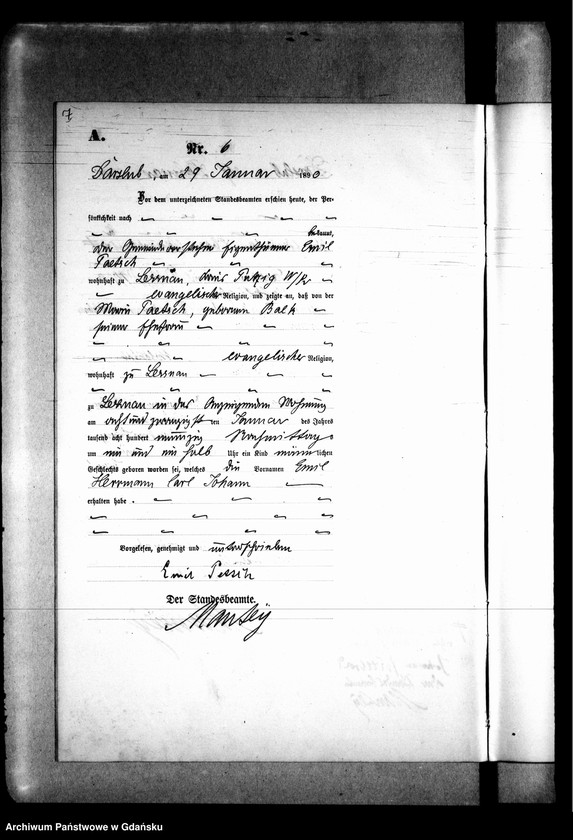 7
A.
Nr. 6
am 29 Januar 1890
Vor dem unterzeichneten Standesbeamten erschien heute, der Per-
sönlichkeit nach
bekannt,
der Gemeindevorsteher Eigenthümer Emil
Paetsch
wohnhaft zu Lessnau, Kreis Putzig W/Pr
evangelischer Religion, und zeigte an, daß von der
Marie Paetsch, geborenen Balk
seiner Ehefrau
evangelischer Religion,
wohnhaft zu Lessnau
zu Lessnau in des Anzeigenden Wohnung
am acht und zwanzigsten Januar des Jahres
tausend acht hundert neunzig Nachmittags
um ein und ein halb Uhr ein Kind männlichen
Geschlechts geboren worden sei, welches die Vornamen Emil
Herrmann Carl Johann
erhalten habe.
Vorgelesen, genehmigt und unterschrieben
Emil
Der Standesbeamte.
Archiwum Państwowe w Gdańsku